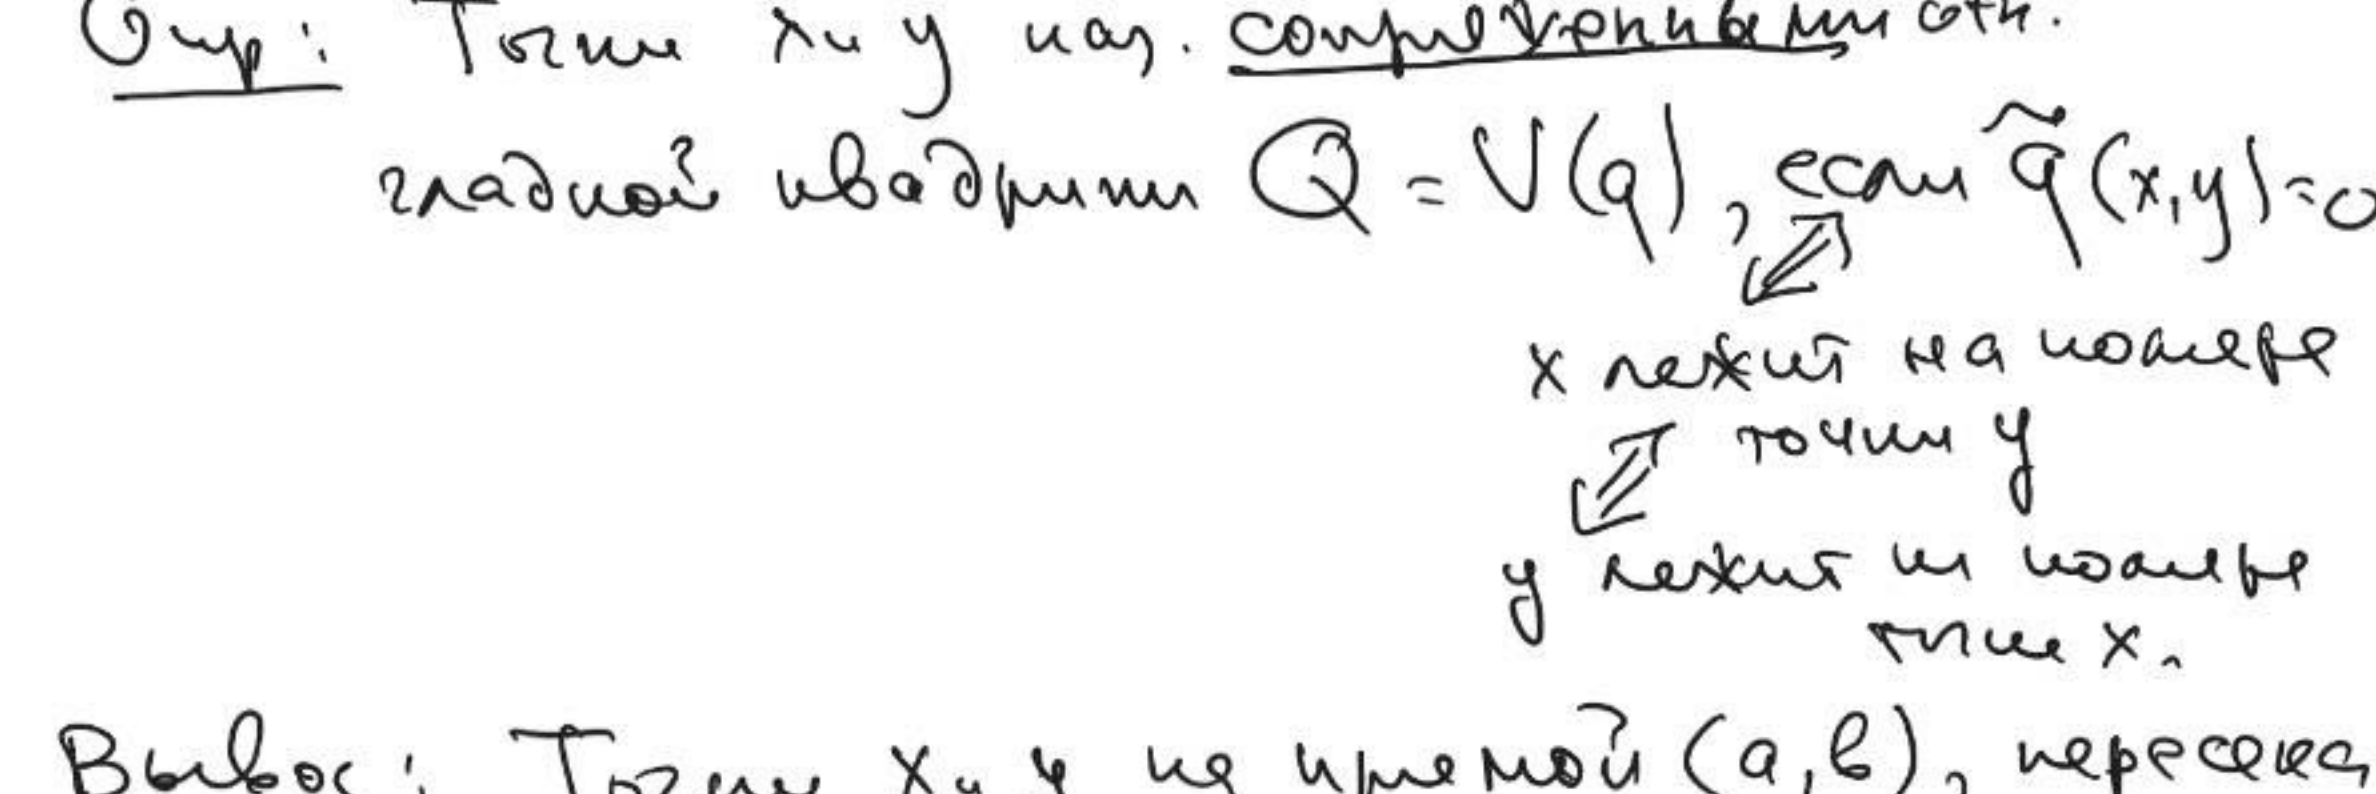 Опр: Точки x и y наз. сопряженными отн.
гладкой квадрики Q = V(q), если q̃(x,y)=0
⇕
x лежит на поляре
точки y
⇕
y лежит на поляре
точки x.
Вывод: Точки x и y на прямой (a,b), пересека